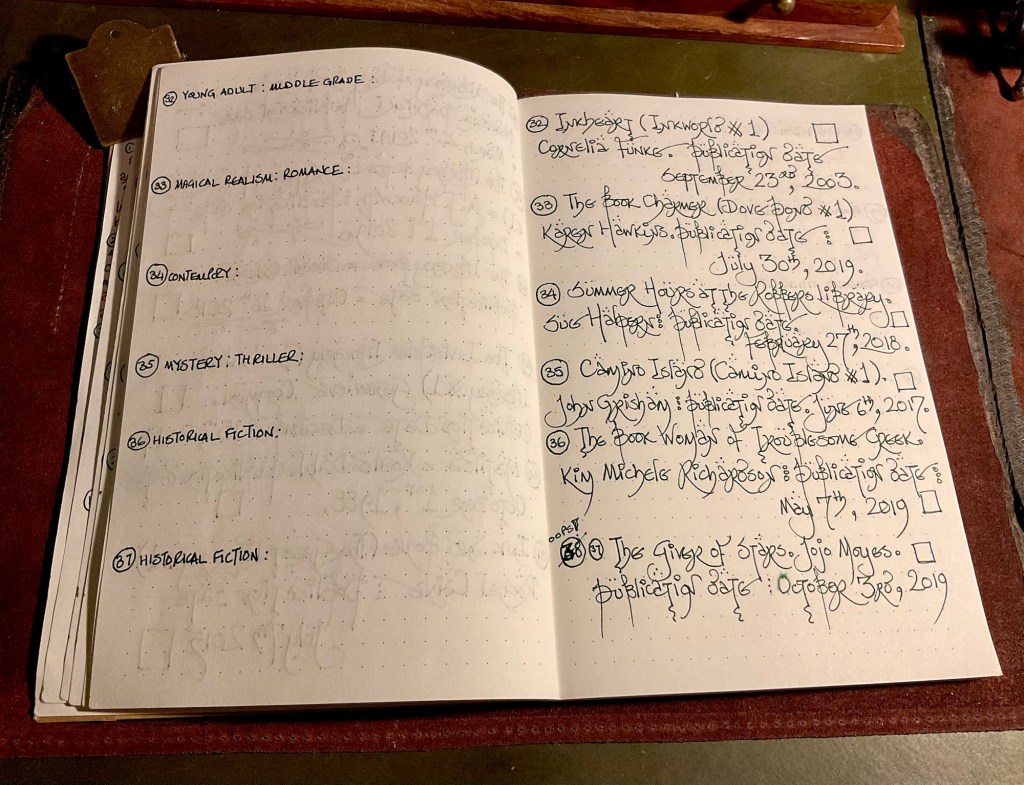 32 YOUNG ADULT : MIDDLE GRADE :
33 MAGICAL REALISM : ROMANCE :
34 CONTEMPORY :
35 MYSTERY : THRILLER :
36 HISTORICAL FICTION :
37 HISTORICAL FICTION :
32 Inkheart (Inkworld #1)
Cornelia Funke. publication date
September 23rd, 2003.
33 The Book Charmer (Dove Pond #1)
Karen Hawkins. publication date :
July 30th, 2019.
34 Summer Hours at the Robbers Library.
Sue Halpern : publication date.
February 27th, 2018.
35 Camino Island (Camino Island #1).
John Grisham : publication date. June 6th, 2017.
36 The Book Woman of Troublesome Creek.
Kim Michele Richardson : publication date :
May 7th, 2019
OOPS!
38 37 The Giver of Stars. Jojo Moyes.
publication date : October 3rd, 2019